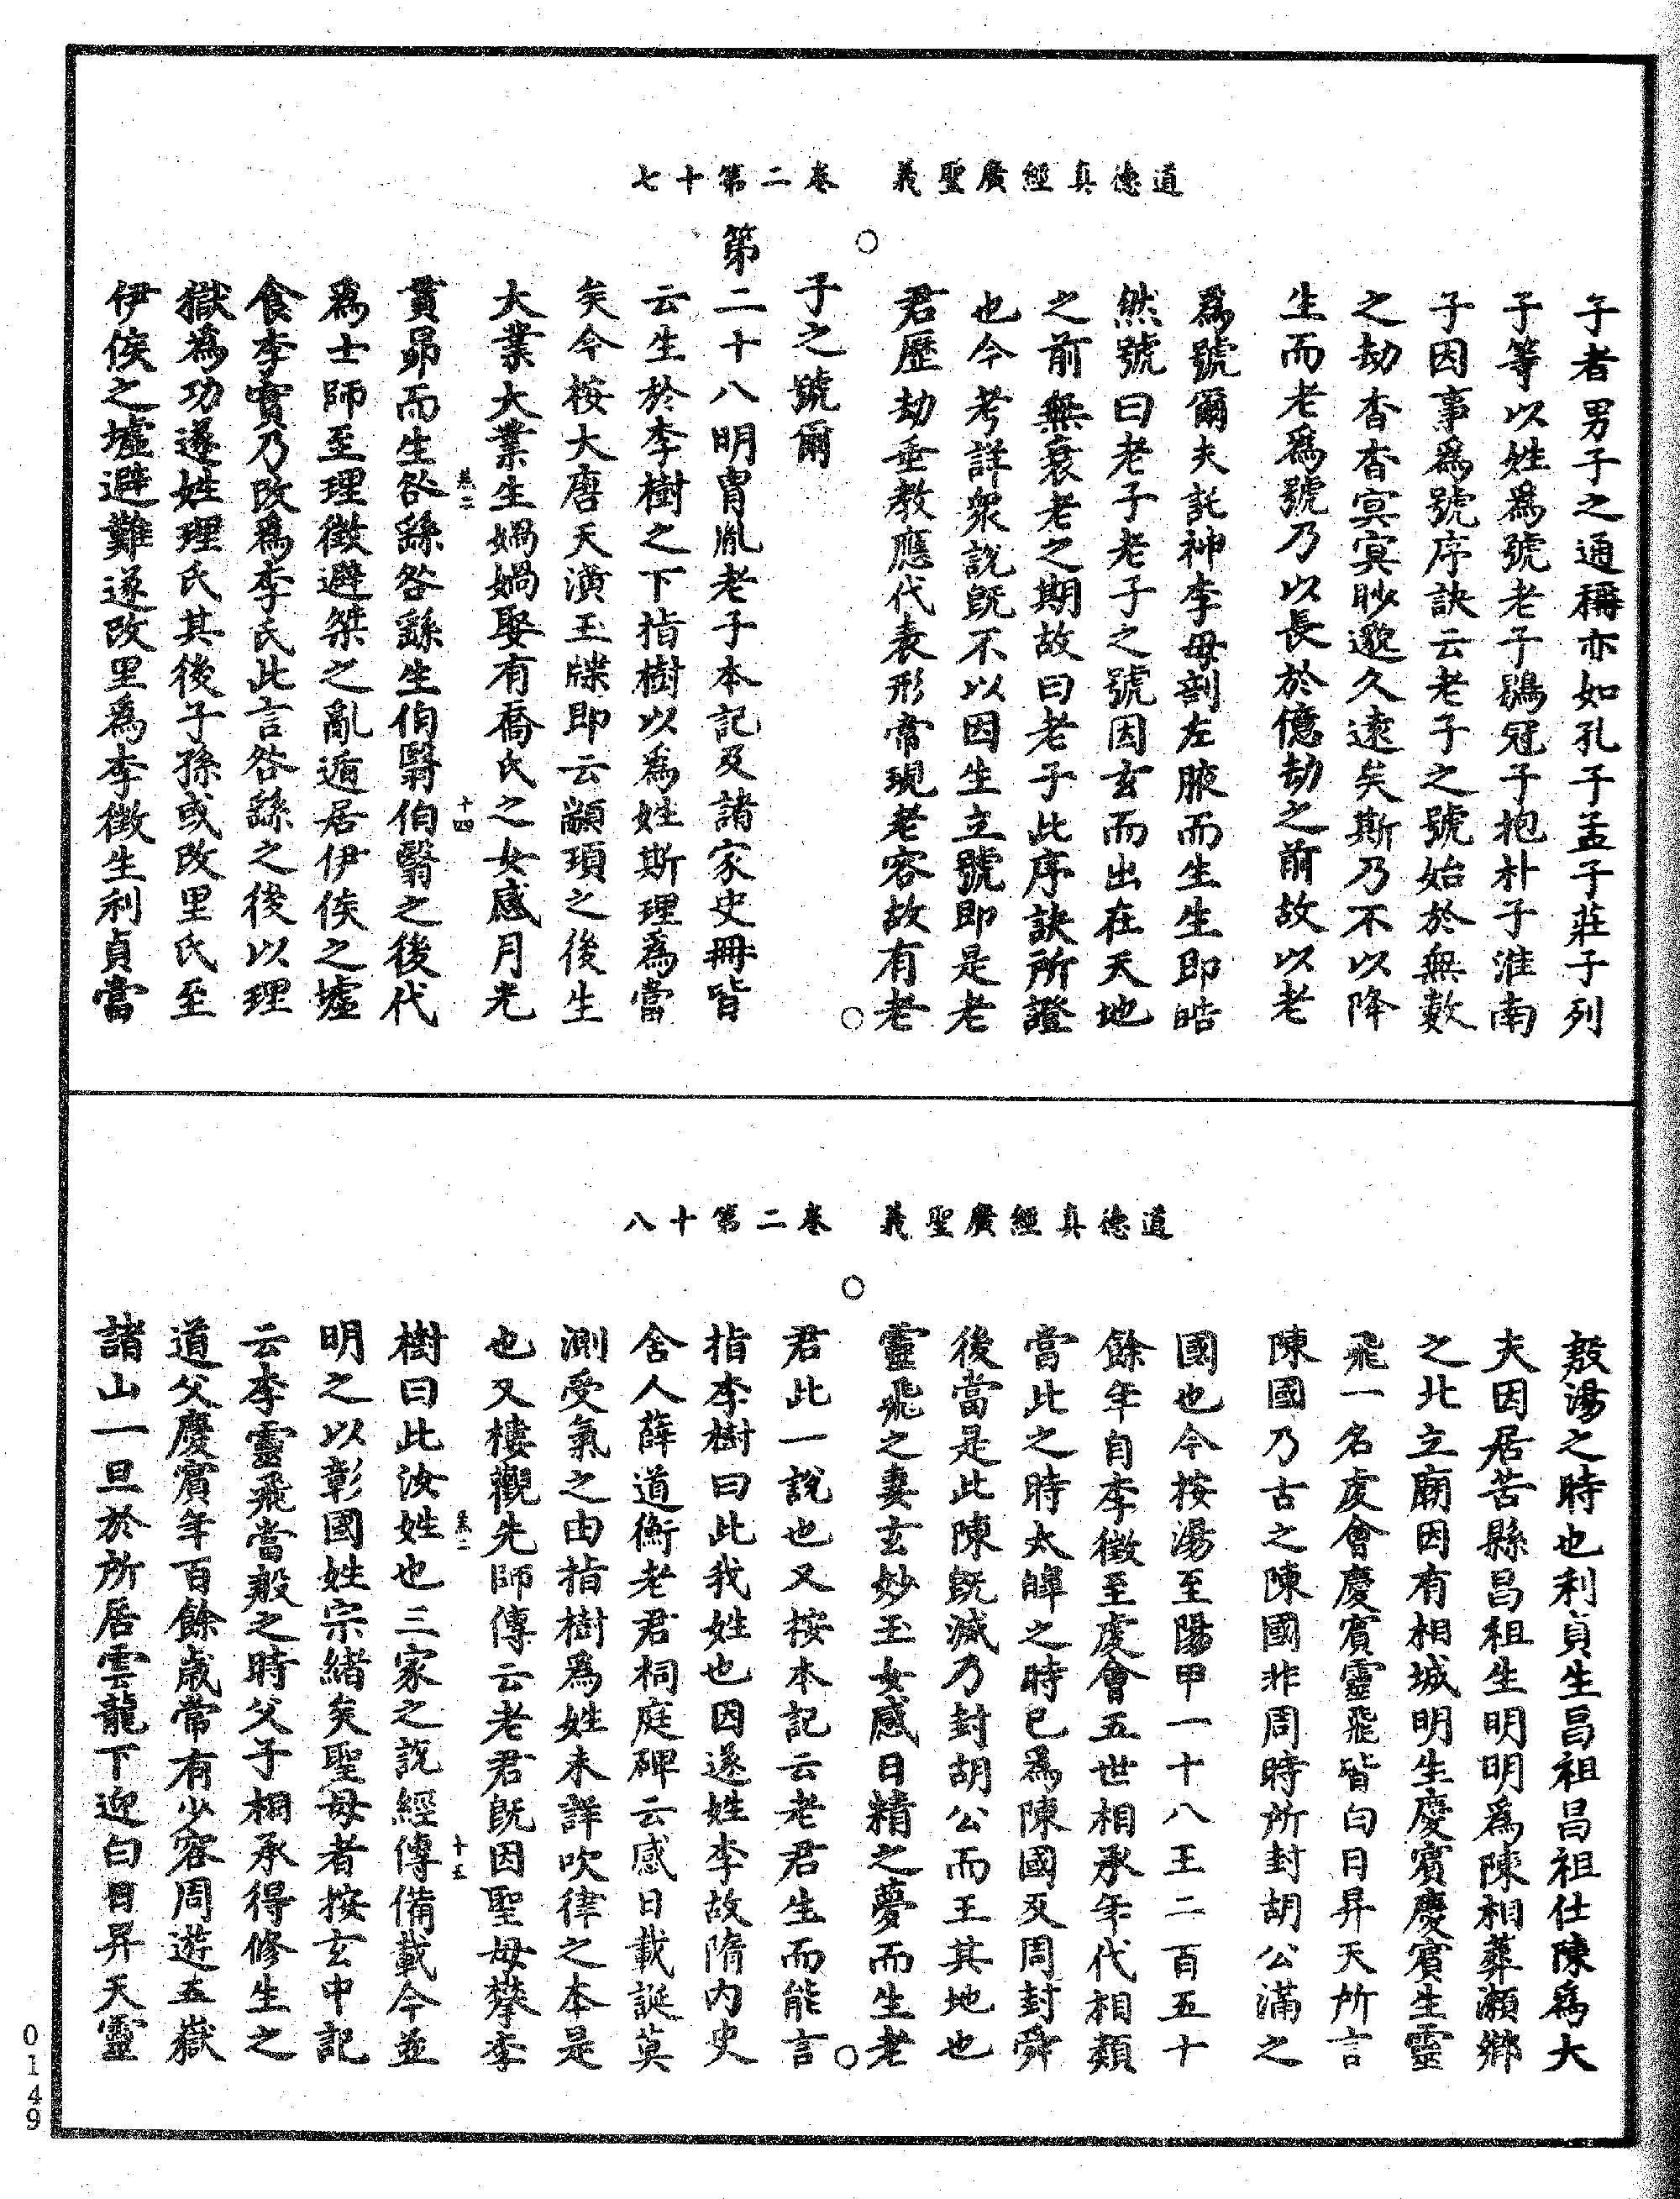 道德真經廣聖義　卷二第十七
子者男子之通稱亦如孔子孟子莊子列
子等以姓爲號老子鶡冠子抱朴子淮南
子因事爲號序訣云老子之號始於無數
之劫杳杳冥冥眇邈久遠矣斯乃不以降
生而老爲號乃以長於億劫之前故以老
爲號爾夫託神李母剖左腋而生生即皓
然號曰老子老子之號因玄而出在天地
之前無衰老之期故曰老子此序訣所證
也今考詳衆說旣不以因生立號即是老
君歷劫垂教應代表形常現老容故有老
子之號爾
第二十八明胄胤老子本記及諸家史冊皆
云生於李樹之下指樹以爲姓斯理爲當
矣今按大唐天潢玉牒即云顓頊之後生
大業大業生媧媧娶有喬氏之女感月光
貫昴而生咎繇咎繇生伯翳伯翳之後代
卷二
十四
爲士師至理徵避桀之亂遁居伊侯之墟
食李實乃改爲李氏此言咎繇之後以理
獄爲功遂姓理氏其後子孫或改里氏至
伊侯之墟避難遂改里爲李徵生利貞當
道德真經廣聖義　卷二第十八
殷湯之時也利貞生昌祖昌祖仕陳爲大
夫因居苦縣昌祖生明明爲陳相葬瀨鄉
之北立廟因有相城明生慶賓慶賓生靈
飛一名虔會慶賓靈飛皆白日昇天所言
陳國乃古之陳國非周時所封胡公滿之
國也今按湯至陽甲一十八王二百五十
餘年自李徵至虔會五世相承年代相類
當此之時太皥之時已爲陳國及周封舜
後當是此陳旣滅乃封胡公而王其地也
靈飛之妻玄妙玉女感日精之夢而生老
君此一說也又按本記云老君生而能言
指李樹曰此我姓也因遂姓李故隋內史
舍人薛道衡老君祠庭碑云感日載誕莫
測受氣之由指樹爲姓未詳吹律之本是
也又樓觀先師傳云老君旣因聖母攀李
樹曰此汝姓也三家之說經傳備載今並
卷二
十五
明之以彰國姓宗緒矣聖母者按玄中記
云李靈飛當殷之時父子相承得修生之
道父慶賓年百餘歲常有少容周遊五嶽
諸山一旦於所居雲龍下迎白日昇天靈
0149